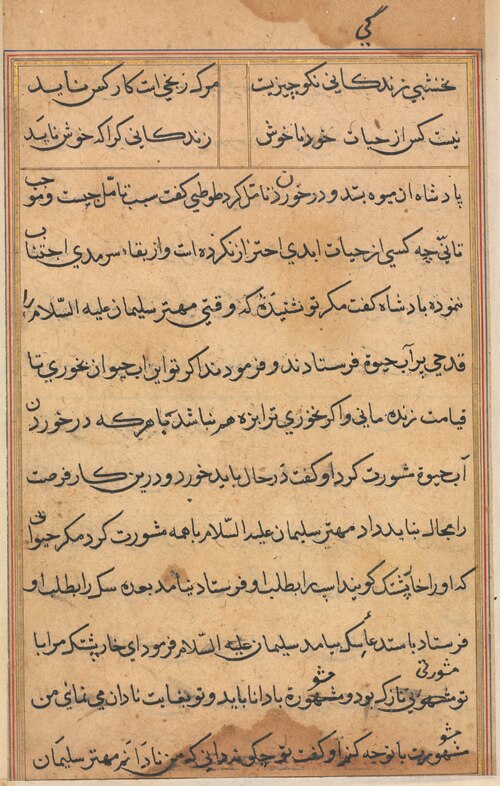 کی
نخشبی زندگانی نکو چیزیست
مرگ زیخی است کار کس نماید
نیست کس از حیات خود ناخوش
زندگانی کرا که خوش ناید
پادشاه آن میوه بستد و در خوردن تامل کرد طوطی گفت سبب تامل چیست و موجب
تانی چه کسی از حیات ابدی احتراز نکرده است و از بقاء سرمدی اجتناب
نموده پادشاه گفت مگر تو نشنیدهٔ که وقتی مهتر سلیمان علیه السلام را
قدحی پر آب حیوة فرستادند و فرمودند اگر تو این آب حیوان بخوری تا
قیامت زنده مانی و اگر نخوری ترا بزه هم نباشد با هرکه در خوردن
آب حیوة مشورت کرد او گفت در حال باید خورد و درین کار فرصت
را مجال نباید داد مهتر سلیمان علیه السلام با همه مشورت کرد مگر حیوانی
که او را خارپشتک گویند اسپ را بطلب او فرستاد نیامد بعده سگ را بطلب او
فرستاد باستدعاء سگ بیامد سلیمان علیه السلام فرمود ای خارپشتک مرا با
تو مشورتی نازک بود و مشورة با دانا باید و تو بغایت نادان می نمائی من
مشورت با تو چه کنم او گفت تو چگونه دانی که من نادانم مهتر سلیمان